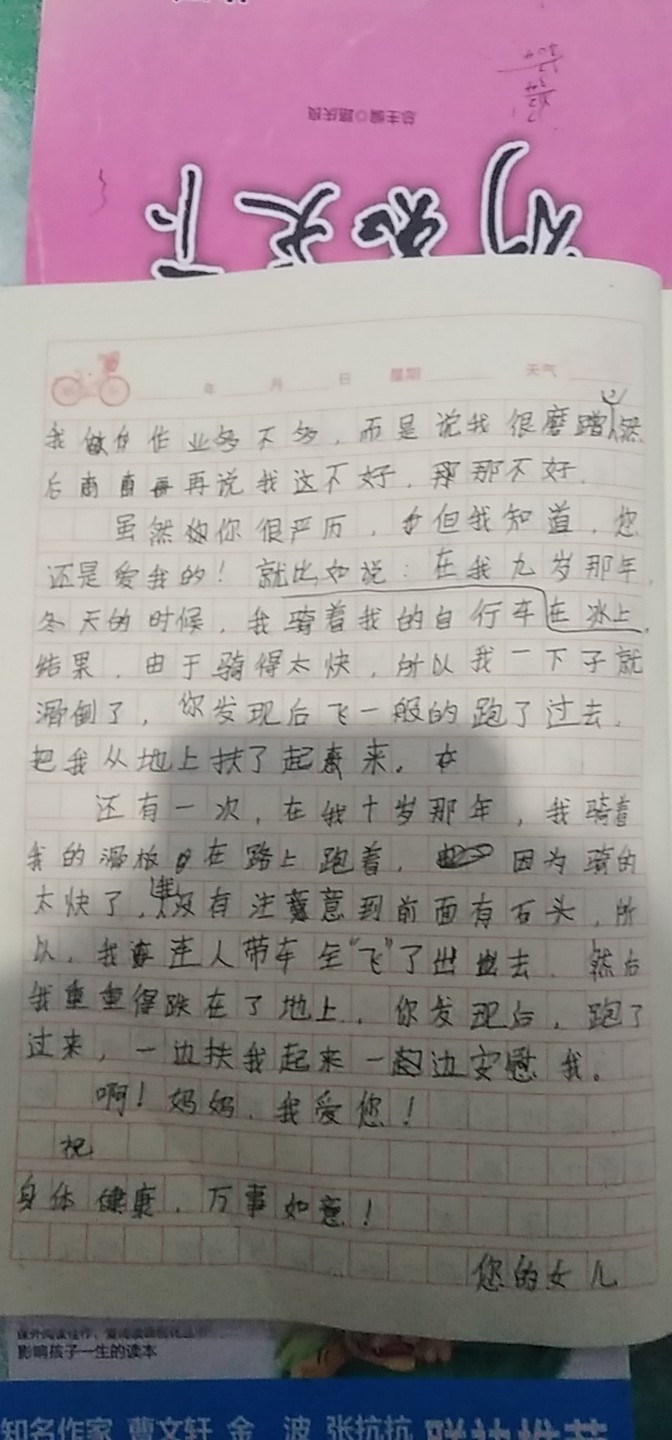 总主编◎路庆良
年 月 日 星期 天气
我做作业多不多，而是说我很磨蹭，然
后再说我这不好，那不好。
虽然你很严历，但我知道，您
还是爱我的！就比如说：在我九岁那年
冬天的时候，我骑着我的自行车在冰上，
结果，由于骑得太快，所以我一下子就
滑倒了，你发现后飞一般的跑了过去，
把我从地上扶了起来。
还有一次，在我十岁那年，我骑着
我的滑板在路上跑着，因为骑的
太快了，没有注意到前面有石头，所
以，我连人带车全“飞”了出去，然后
我重重得跌在了地上，你发现后，跑了
过来，一边扶我起来一边安慰我。
啊！妈妈，我爱您！
祝
身体健康，万事如意！
您的女儿
影响孩子一生的读本
知名作家 曹文轩 金 波 张抗抗 联袂推荐